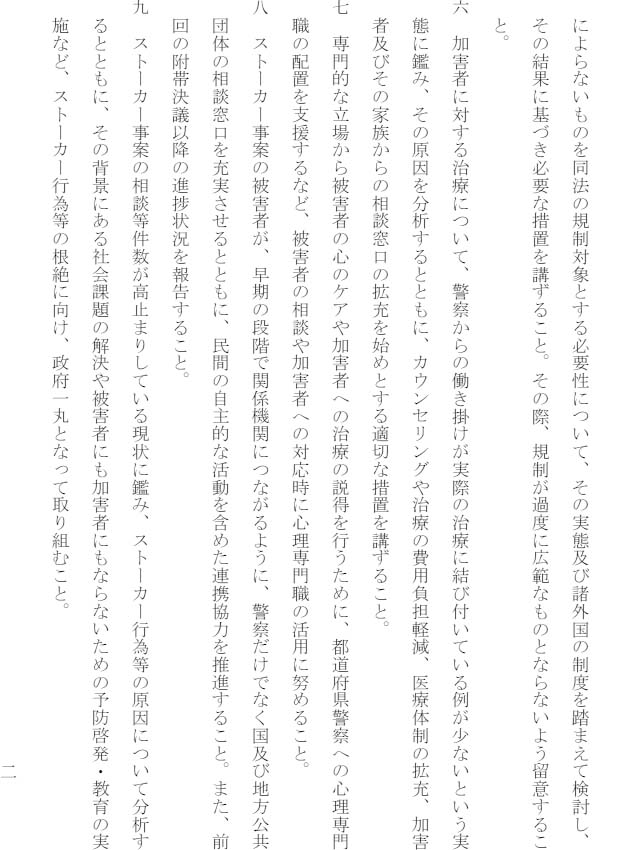 によらないものを同法の規制対象とする必要性について、その実態及び諸外国の制度を踏まえて検討し、
その結果に基づき必要な措置を講ずること。その際、規制が過度に広範なものとならないよう留意するこ
と。
六　加害者に対する治療について、警察からの働き掛けが実際の治療に結び付いている例が少ないという実
態に鑑み、その原因を分析するとともに、カウンセリングや治療の費用負担軽減、医療体制の拡充、加害
者及びその家族からの相談窓口の拡充を始めとする適切な措置を講ずること。
七　専門的な立場から被害者の心のケアや加害者への治療の説得を行うために、都道府県警察への心理専門
職の配置を支援するなど、被害者の相談や加害者への対応時に心理専門職の活用に努めること。
八　ストーカー事案の被害者が、早期の段階で関係機関につながるように、警察だけでなく国及び地方公共
団体の相談窓口を充実させるとともに、民間の自主的な活動を含めた連携協力を推進すること。また、前
回の附帯決議以降の進捗状況を報告すること。
九　ストーカー事案の相談等件数が高止まりしている現状に鑑み、ストーカー行為等の原因について分析す
るとともに、その背景にある社会課題の解決や被害者にも加害者にもならないための予防啓発・教育の実
施など、ストーカー行為等の根絶に向け、政府一丸となって取り組むこと。
二